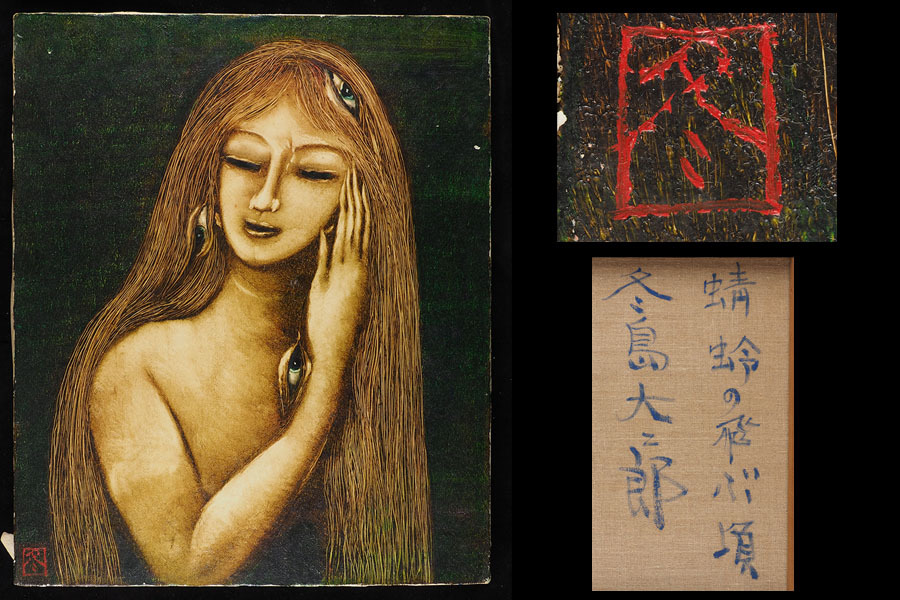 冬
蜻蛉の飛ぶ頃
冬島大二郎